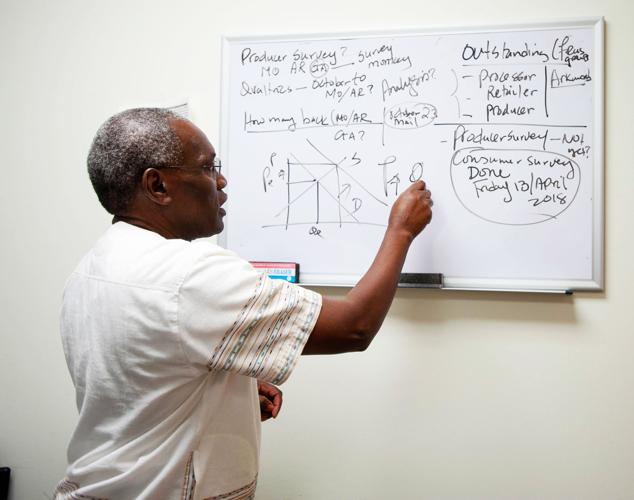 Producer survey? survey
MO AR GA monkey
Qualtrics — October to
MO/AR? Analysis?
How may back (MO/AR
GA?
October 23
mail
Outstanding (
- Processor
Retailer
- Producer
Arkansas
- Producer survey — Not
yet?
Consumer survey
Done
Friday 13/April
2018
P
Pe
S
D
Qe
P Q